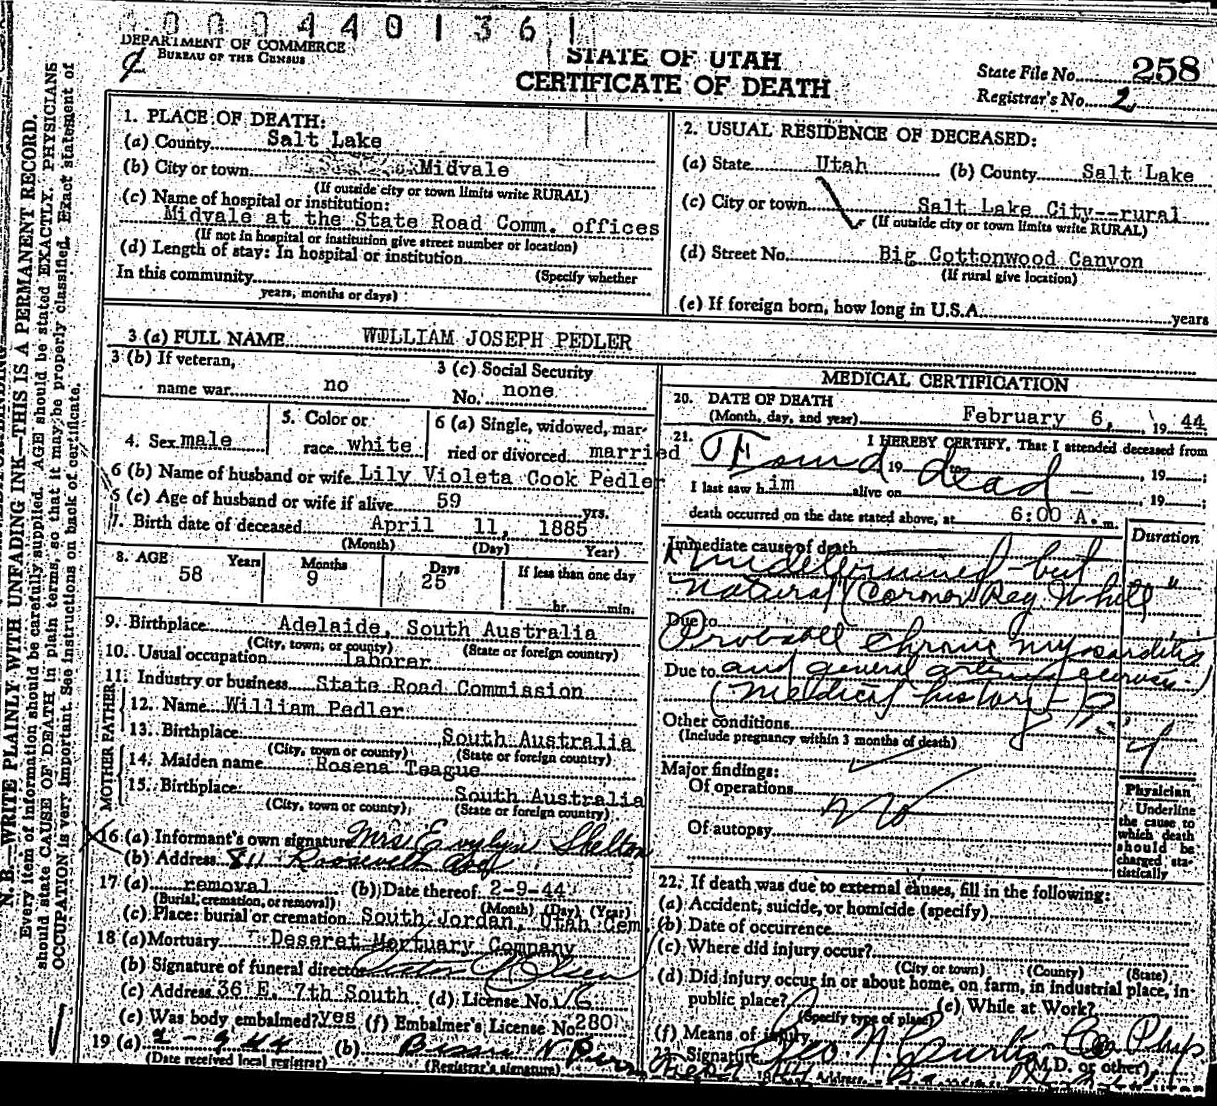 0004401361
DEPARTMENT OF COMMERCE
BUREAU OF THE CENSUS
STATE OF UTAH
CERTIFICATE OF DEATH
State File No. 258
Registrar's No. 2
N. B.—WRITE PLAINLY WITH UNFADING INK—THIS IS A PERMANENT RECORD.
Every item of information should be carefully supplied. AGE should be stated EXACTLY. PHYSICIANS
should state CAUSE OF DEATH in plain terms, so that it may be properly classified. Exact statement of
OCCUPATION is very important. See instructions on back of certificate.
1. PLACE OF DEATH:
(a) County Salt Lake
(b) City or town Midvale
(If outside city or town limits write RURAL)
(c) Name of hospital or institution:
Midvale at the State Road Comm. offices
(If not in hospital or institution give street number or location)
(d) Length of stay: In hospital or institution
(Specify whether
In this community
years, months or days)
2. USUAL RESIDENCE OF DECEASED:
(a) State Utah (b) County Salt Lake
(c) City or town Salt Lake City--rural
(If outside city or town limits write RURAL)
(d) Street No. Big Cottonwood Canyon
(If rural give location)
(e) If foreign born, how long in U.S.A. years
3 (a) FULL NAME WILLIAM JOSEPH PEDLER
3 (b) If veteran,
name war no
3 (c) Social Security
No. none
4. Sex male
5. Color or
race white
6 (a) Single, widowed, mar-
ried or divorced married
6 (b) Name of husband or wife Lily Violeta Cook Pedler
6 (c) Age of husband or wife if alive 59 yrs.
7. Birth date of deceased April 11, 1885
(Month) (Day) Year)
8. AGE Years Months Days If less than one day
58 9 25 hr. min.
9. Birthplace Adelaide, South Australia
(City, town, or county) (State or foreign country)
10. Usual occupation laborer
11. Industry or business State Road Commission
FATHER
12. Name William Pedler
13. Birthplace South Australia
(City, town or county) (State or foreign country)
MOTHER
14. Maiden name Rosena Teague
15. Birthplace South Australia
(City, town or county) (State or foreign country)
16 (a) Informant's own signature Mrs. Evylyn Shelton
(b) Address 811 Roosevelt Ave
17 (a) removal (b) Date thereof 2-9-44
(Burial, cremation, or removal) (Month) (Day) (Year)
(c) Place: burial or cremation South Jordan, Utah Cem
18 (a) Mortuary Deseret Mortuary Company
(b) Signature of funeral director
(c) Address 36 E. 7th South (d) License No. 16
(e) Was body embalmed? yes (f) Embalmer's License No. 280
19 (a) 2-9-44 (b)
(Date received local registrar) (Registrar's signature)
MEDICAL CERTIFICATION
20. DATE OF DEATH
(Month, day, and year) February 6, 19 44
21. I HEREBY CERTIFY, That I attended deceased from
Found dead 19 to , 19 ;
I last saw him alive on , 19 ;
death occurred on the date stated above, at 6:00 A. m.
Duration
Immediate cause of death
Undetermined but
natural (Coroner
Due to
Probable chronic myocarditis
Due to and general
(medical history)
Other conditions
(Include pregnancy within 3 months of death)
Major findings:
Of operations
no
Of autopsy
Physician
Underline
the cause to
which death
should be
charged sta-
tistically
22. If death was due to external causes, fill in the following:
(a) Accident, suicide, or homicide (specify)
(b) Date of occurrence
(c) Where did injury occur?
(City or town) (County) (State)
(d) Did injury occur in or about home, on farm, in industrial place, in
public place? (e) While at Work?
(Specify type of place)
(f) Means of injury
Signature Geo. N. Curtis Co. Phys
(M.D. or other)
Address